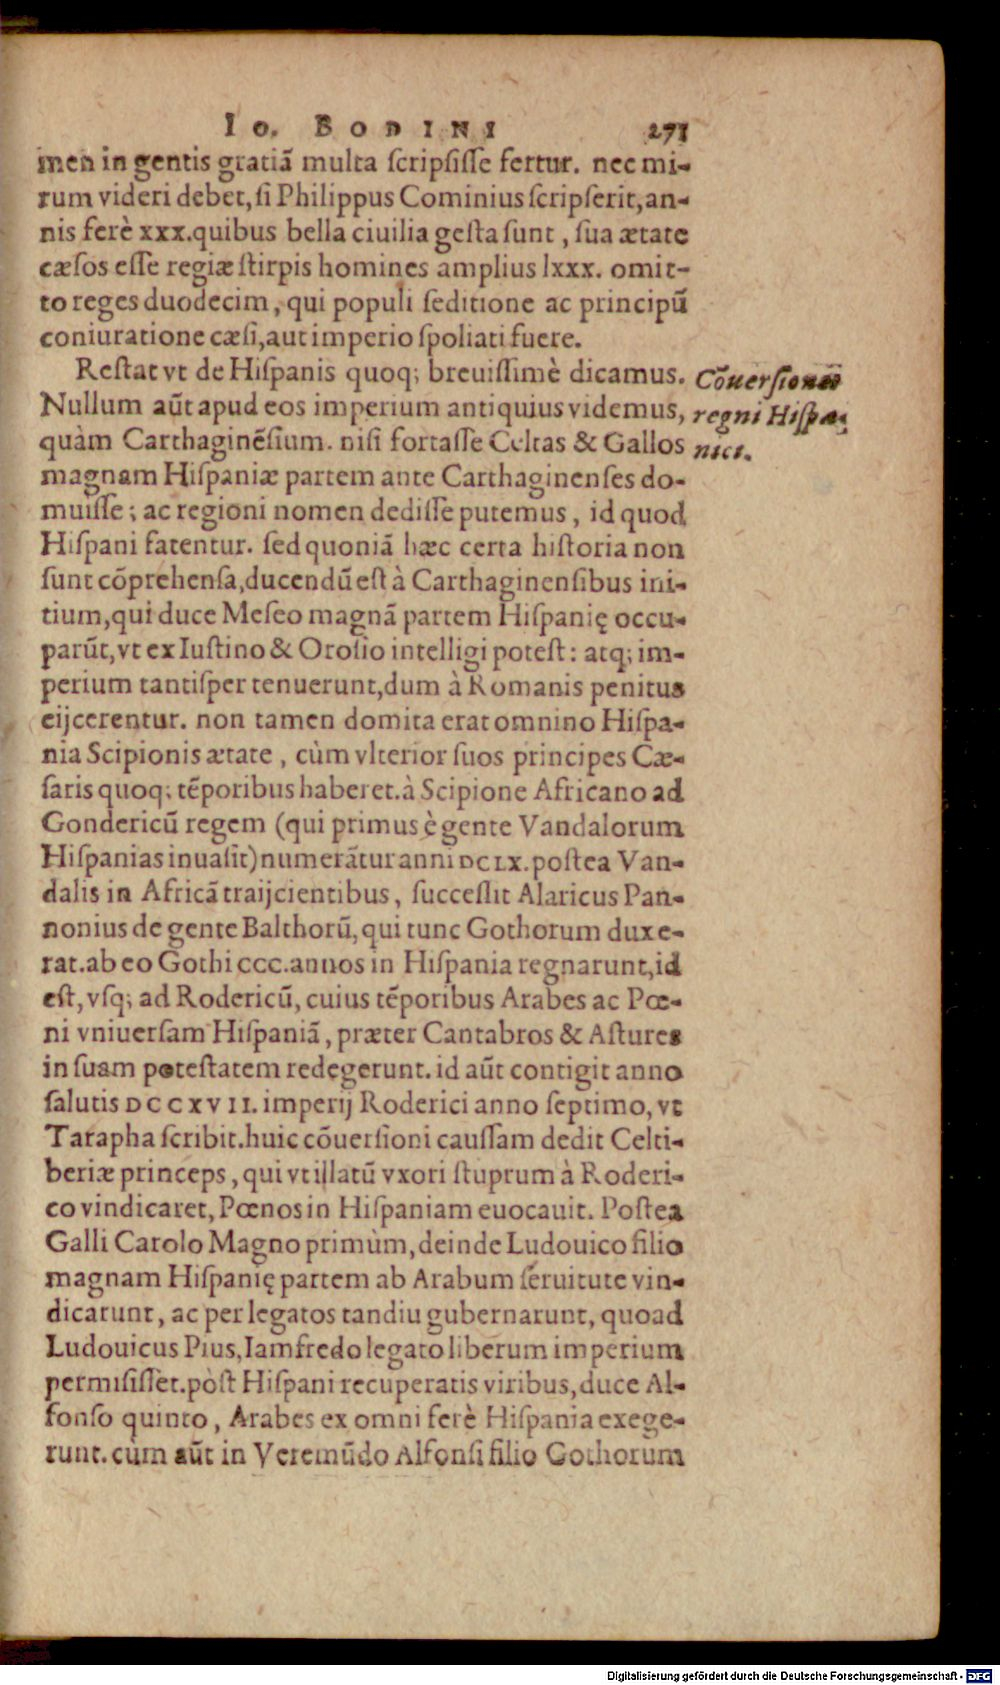 Io. BODINI 271
men in gentis gratiā multa ſcripſiſſe fertur. nec mi-
rum videri debet, ſi Philippus Cominius ſcripſerit, an-
nis ferè xxx. quibus bella ciuilia geſta ſunt, ſua ætate
cæſos eſſe regiæ ſtirpis homines amplius lxxx. omit-
to reges duodecim, qui populi ſeditione ac principū
coniuratione cæſi, aut imperio ſpoliati fuere.
Reſtat vt de Hiſpanis quoq; breuiſſimè dicamus.
Cōuerſiones
Nullum aūt apud eos imperium antiquius videmus,
regni Hiſpa-
quàm Carthaginēſium. niſi fortaſſe Celtas & Gallos
nici.
magnam Hiſpaniæ partem ante Carthaginenſes do-
muiſſe; ac regioni nomen dediſſe putemus, id quod
Hiſpani fatentur. ſed quoniā hæc certa hiſtoria non
ſunt cōprehenſa, ducendū eſt à Carthaginenſibus ini-
tium, qui duce Meſeo magnā partem Hiſpanię occu-
parūt, vt ex Iuſtino & Oroſio intelligi poteſt: atq; im-
perium tantiſper tenuerunt, dum à Romanis penitus
eijcerentur. non tamen domita erat omnino Hiſpa-
nia Scipionis ætate, cùm vlterior ſuos principes Cæ-
ſaris quoq; tēporibus haberet. à Scipione Africano ad
Gondericū regem (qui primus è gente Vandalorum
Hiſpanias inuaſit) numerātur anni DCLX. poſtea Van-
dalis in Africā traijcientibus, ſucceſſit Alaricus Pan-
nonius de gente Balthorū, qui tunc Gothorum dux e-
rat. ab eo Gothi ccc. annos in Hiſpania regnarunt, id
eſt, vſq; ad Rodericū, cuius tēporibus Arabes ac Pœ-
ni vniuerſam Hiſpaniā, præter Cantabros & Aſtures
in ſuam poteſtatem redegerunt. id aūt contigit anno
ſalutis DCCXVII. imperij Roderici anno ſeptimo, vt
Tarapha ſcribit. huic cōuerſioni cauſſam dedit Celti-
beriæ princeps, qui vt illatū vxori ſtuprum à Roderi-
co vindicaret, Pœnos in Hiſpaniam euocauit. Poſtea
Galli Carolo Magno primùm, deinde Ludouico filio
magnam Hiſpanię partem ab Arabum ſeruitute vin-
dicarunt, ac per legatos tandiu gubernarunt, quoad
Ludouicus Pius, Iamfredo legato liberum imperium
permiſiſſet. pòſt Hiſpani recuperatis viribus, duce Al-
fonſo quinto, Arabes ex omni ferè Hiſpania exege-
runt. cùm aūt in Veremūdo Alfonſi filio Gothorum
Digitalisierung gefördert durch die Deutsche Forschungsgemeinschaft - DFG